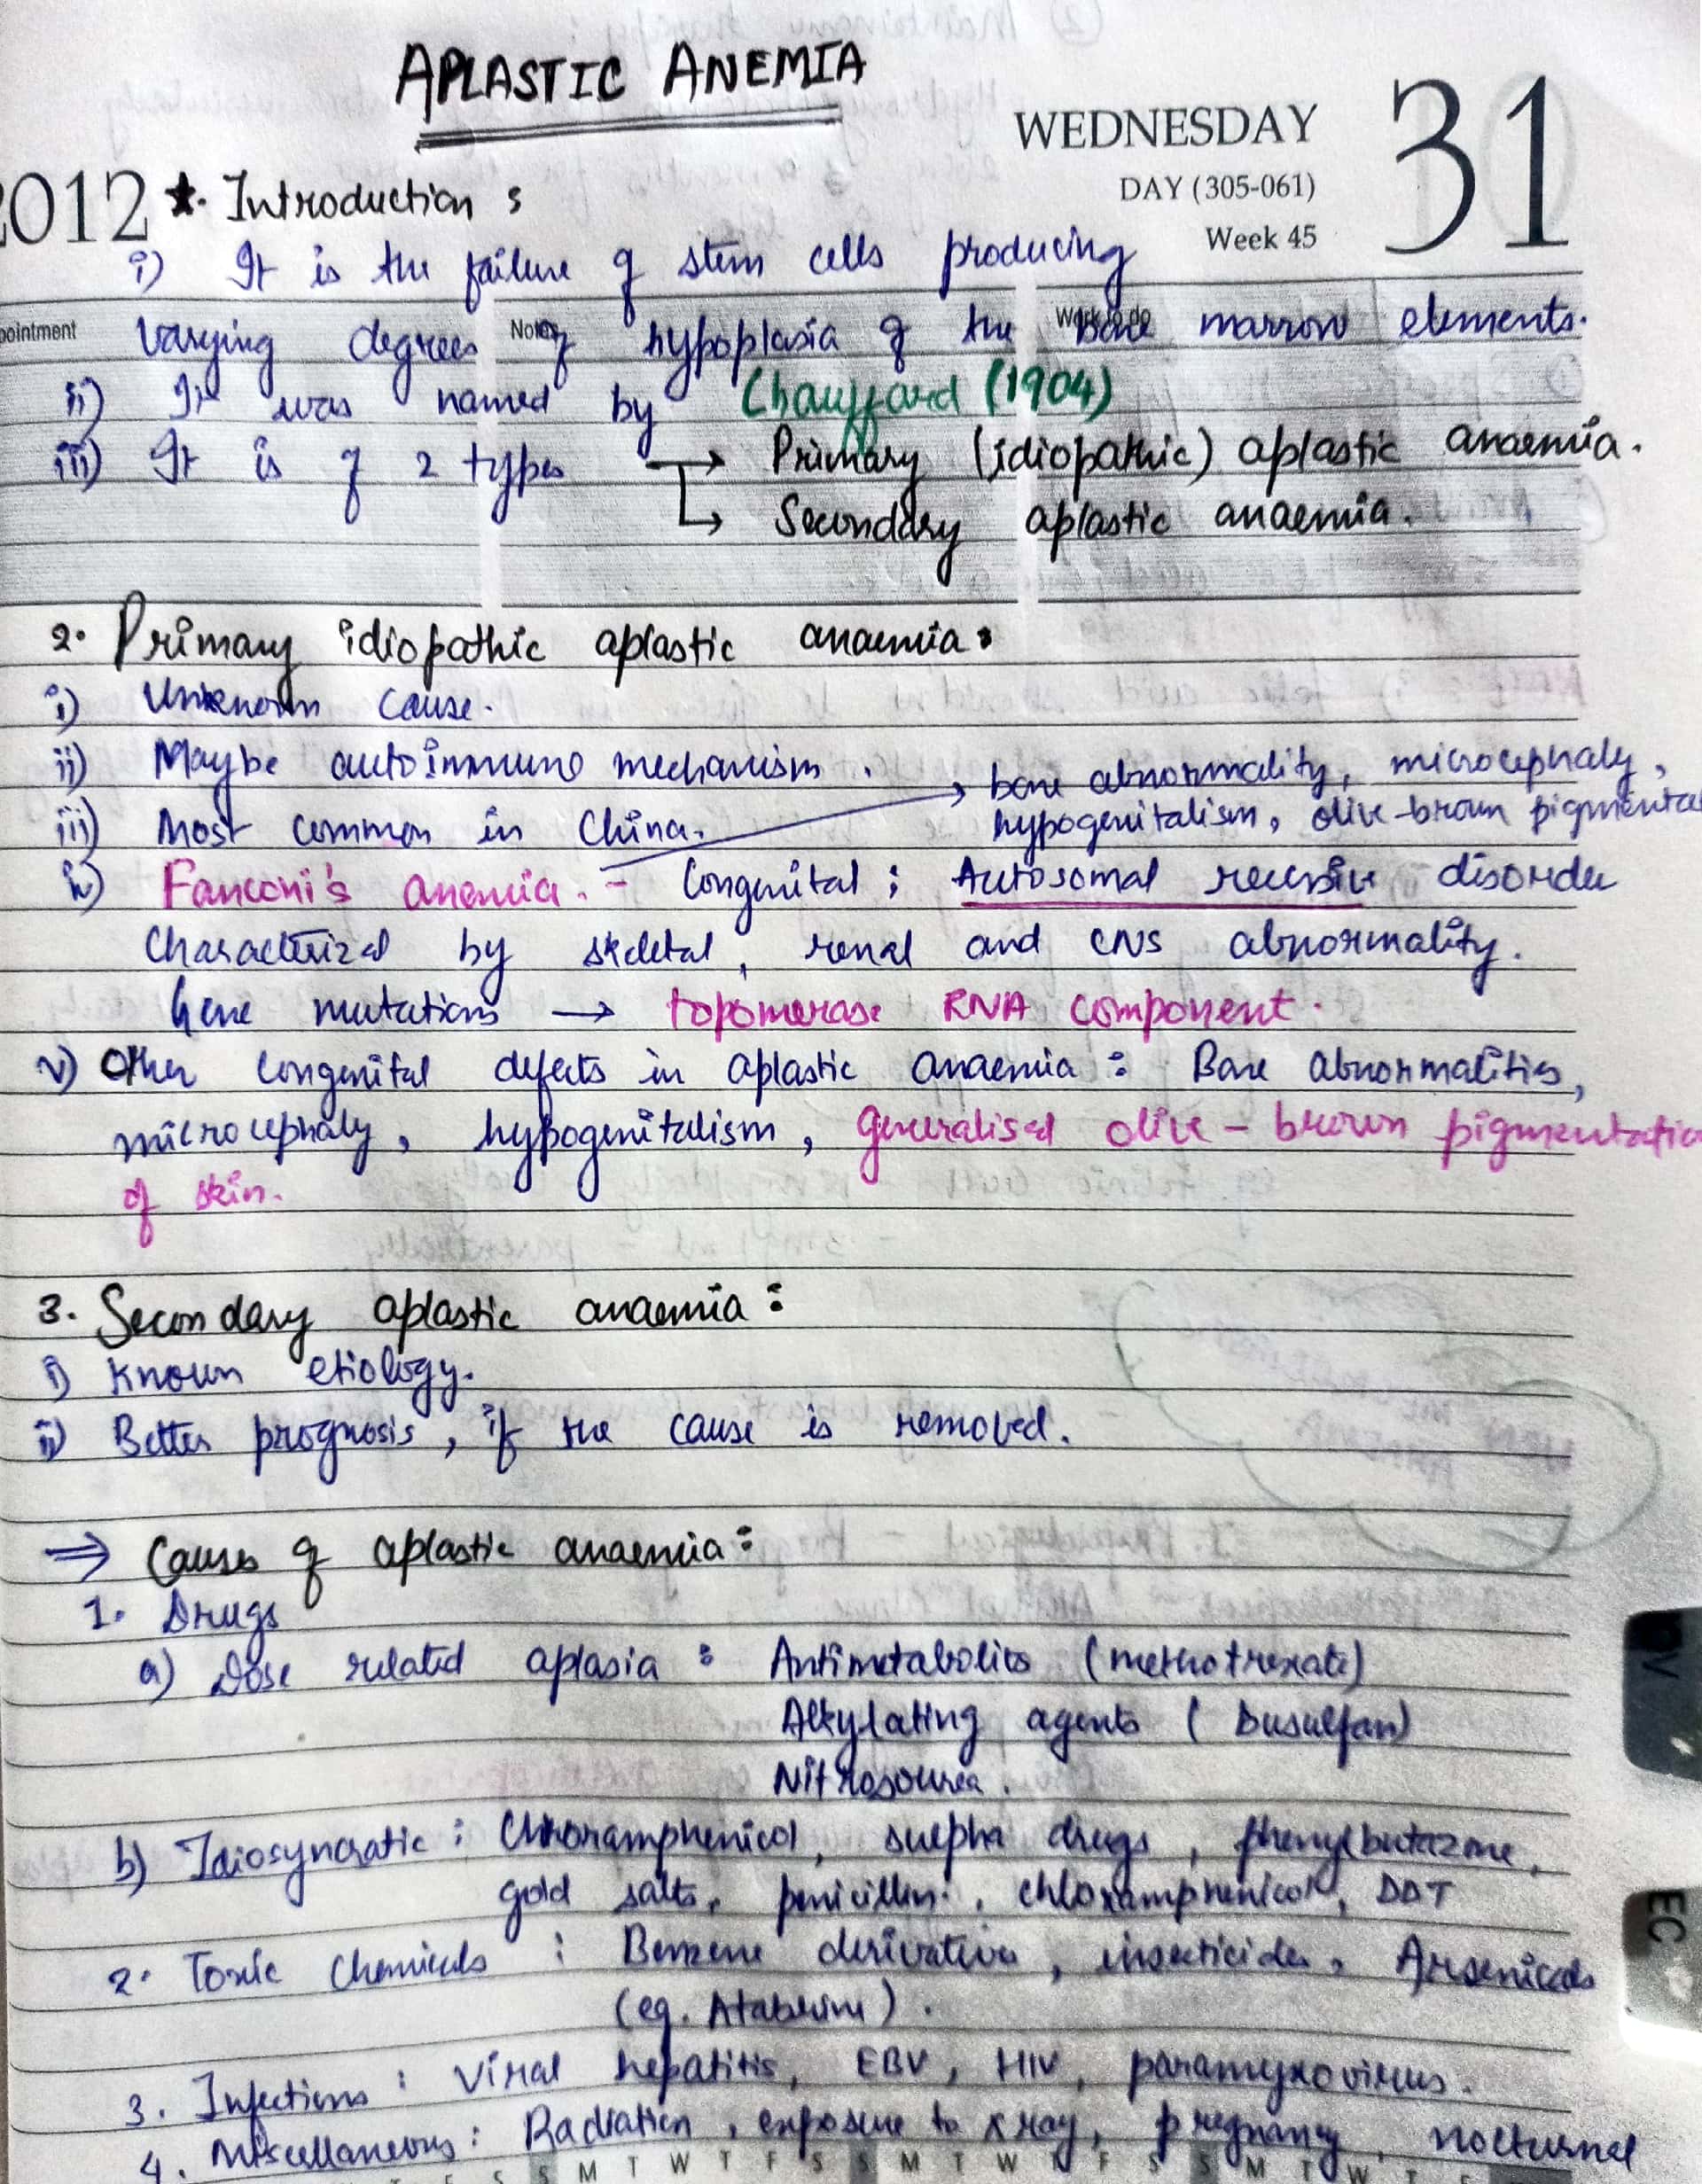 APLASTIC ANEMIA
WEDNESDAY
31
DAY (305-061)
Week 45
2012
★. Introduction :
i) It is the failure of stem cells producing
Appointment Notes Work to do
varying degrees of hypoplasia of the Bone marrow elements.
ii) It was named by Chauffard (1904)
iii) It is of 2 types → Primary (idiopathic) aplastic anaemia.
↳ Secondary aplastic anaemia.
2. Primary idiopathic aplastic anaemia:
i) Unknown cause.
ii) Maybe autoimmune mechanism.
→ bone abnormality, microcephaly,
iii) Most common in China.
hypogenitalism, olive-brown
iv) Fanconi's anemia. - Congenital ; Autosomal recessive disorder
characterized by skeletal, renal and CNS abnormality.
Gene mutations → topomerase RNA component.
v) Other congenital defects in aplastic anaemia : Bone abnormalities,
microcephaly, hypogenitalism, generalised olive-brown pigmentation
of skin.
3. Secondary aplastic anaemia:
i) Known etiology.
ii) Better prognosis, if the cause is removed.
⇒ Causes of aplastic anaemia:
1. Drugs
a) Dose related aplasia : Antimetabolites (methotrexate)
Alkylating agents (busulfan)
Nitrosourea.
b) Idiosyncratic : Chloramphenicol, sulpha drugs, phenylbutazone,
gold salts, penicillin, chloramphenicol, DDT
2. Toxic chemicals : Benzene derivatives, insecticides, Arsenicals
(eg. Atabrine).
3. Infections : Viral hepatitis, EBV, HIV, paramyxovirus.
4. Miscellaneous : Radiation, exposure to x ray, pregnancy, nocturnal
S S M T W T F S S M T W T F S S M T W T
OV
EC